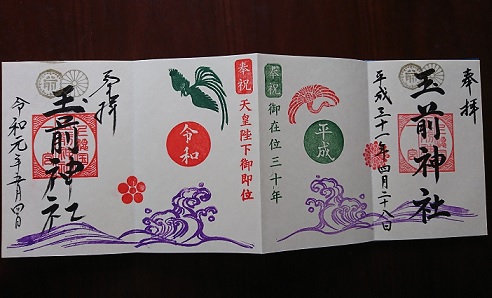 奉拝
玉前神社
平成三十一年四月二十八日
平成
奉祝
御在位三十年
奉祝
天皇陛下御即位
令和
奉拝
玉前神社
令和元年五月四日